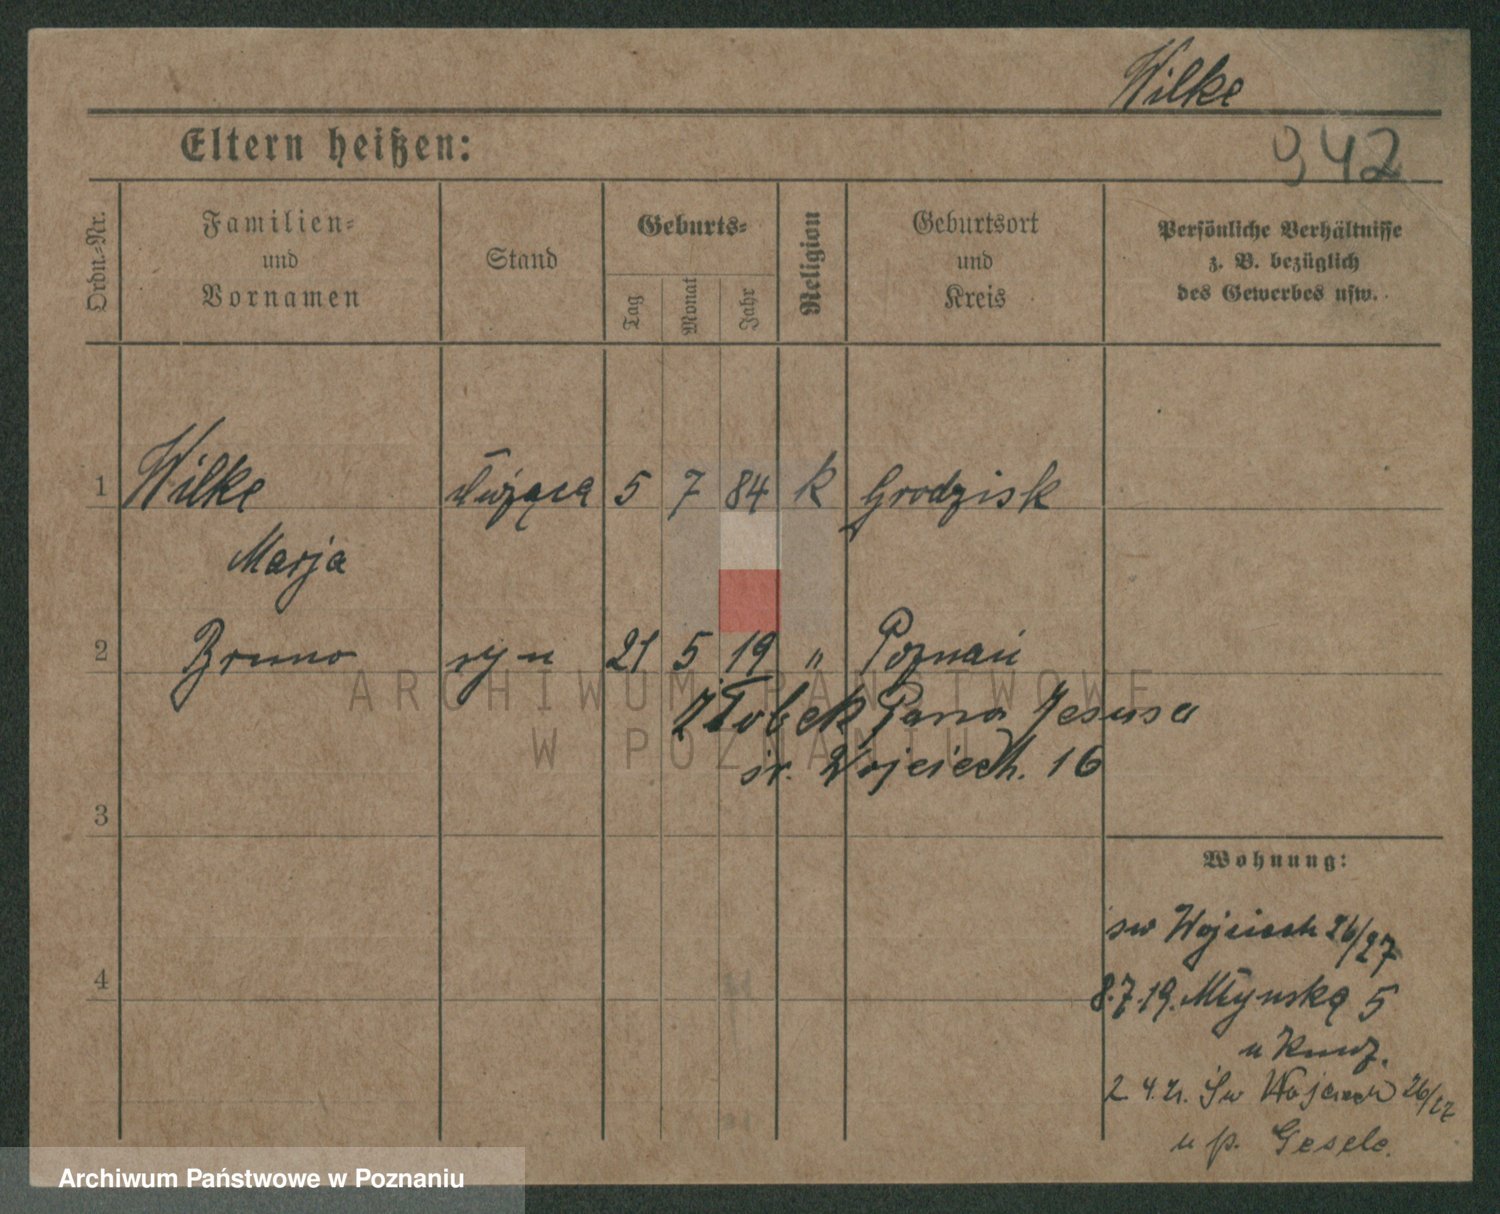 Wilke
942
Eltern heißen:
Ordn.-Nr.
Familien- und Vornamen
Stand
Geburts-
Tag
Monat
Jahr
Religion
Geburtsort und Kreis
Persönliche Verhältnisse z. B. bezüglich des Gewerbes usw.
1 Wilke służąca 5 7 84 k Grodzisk
Marja
2 Bruno syn 21 5 19 " Poznań
Żłobek Pana Jesusa
św. Wojciech. 16
3
4
Wohnung:
św Wojciech 26/27
8.7.19. Młyńska 5
u
2 4. 21. Św Wojciech 26/27
u p. Gesele.
ARCHIWUM PAŃSTWOWE
W POZNANIU
Archiwum Państwowe w Poznaniu